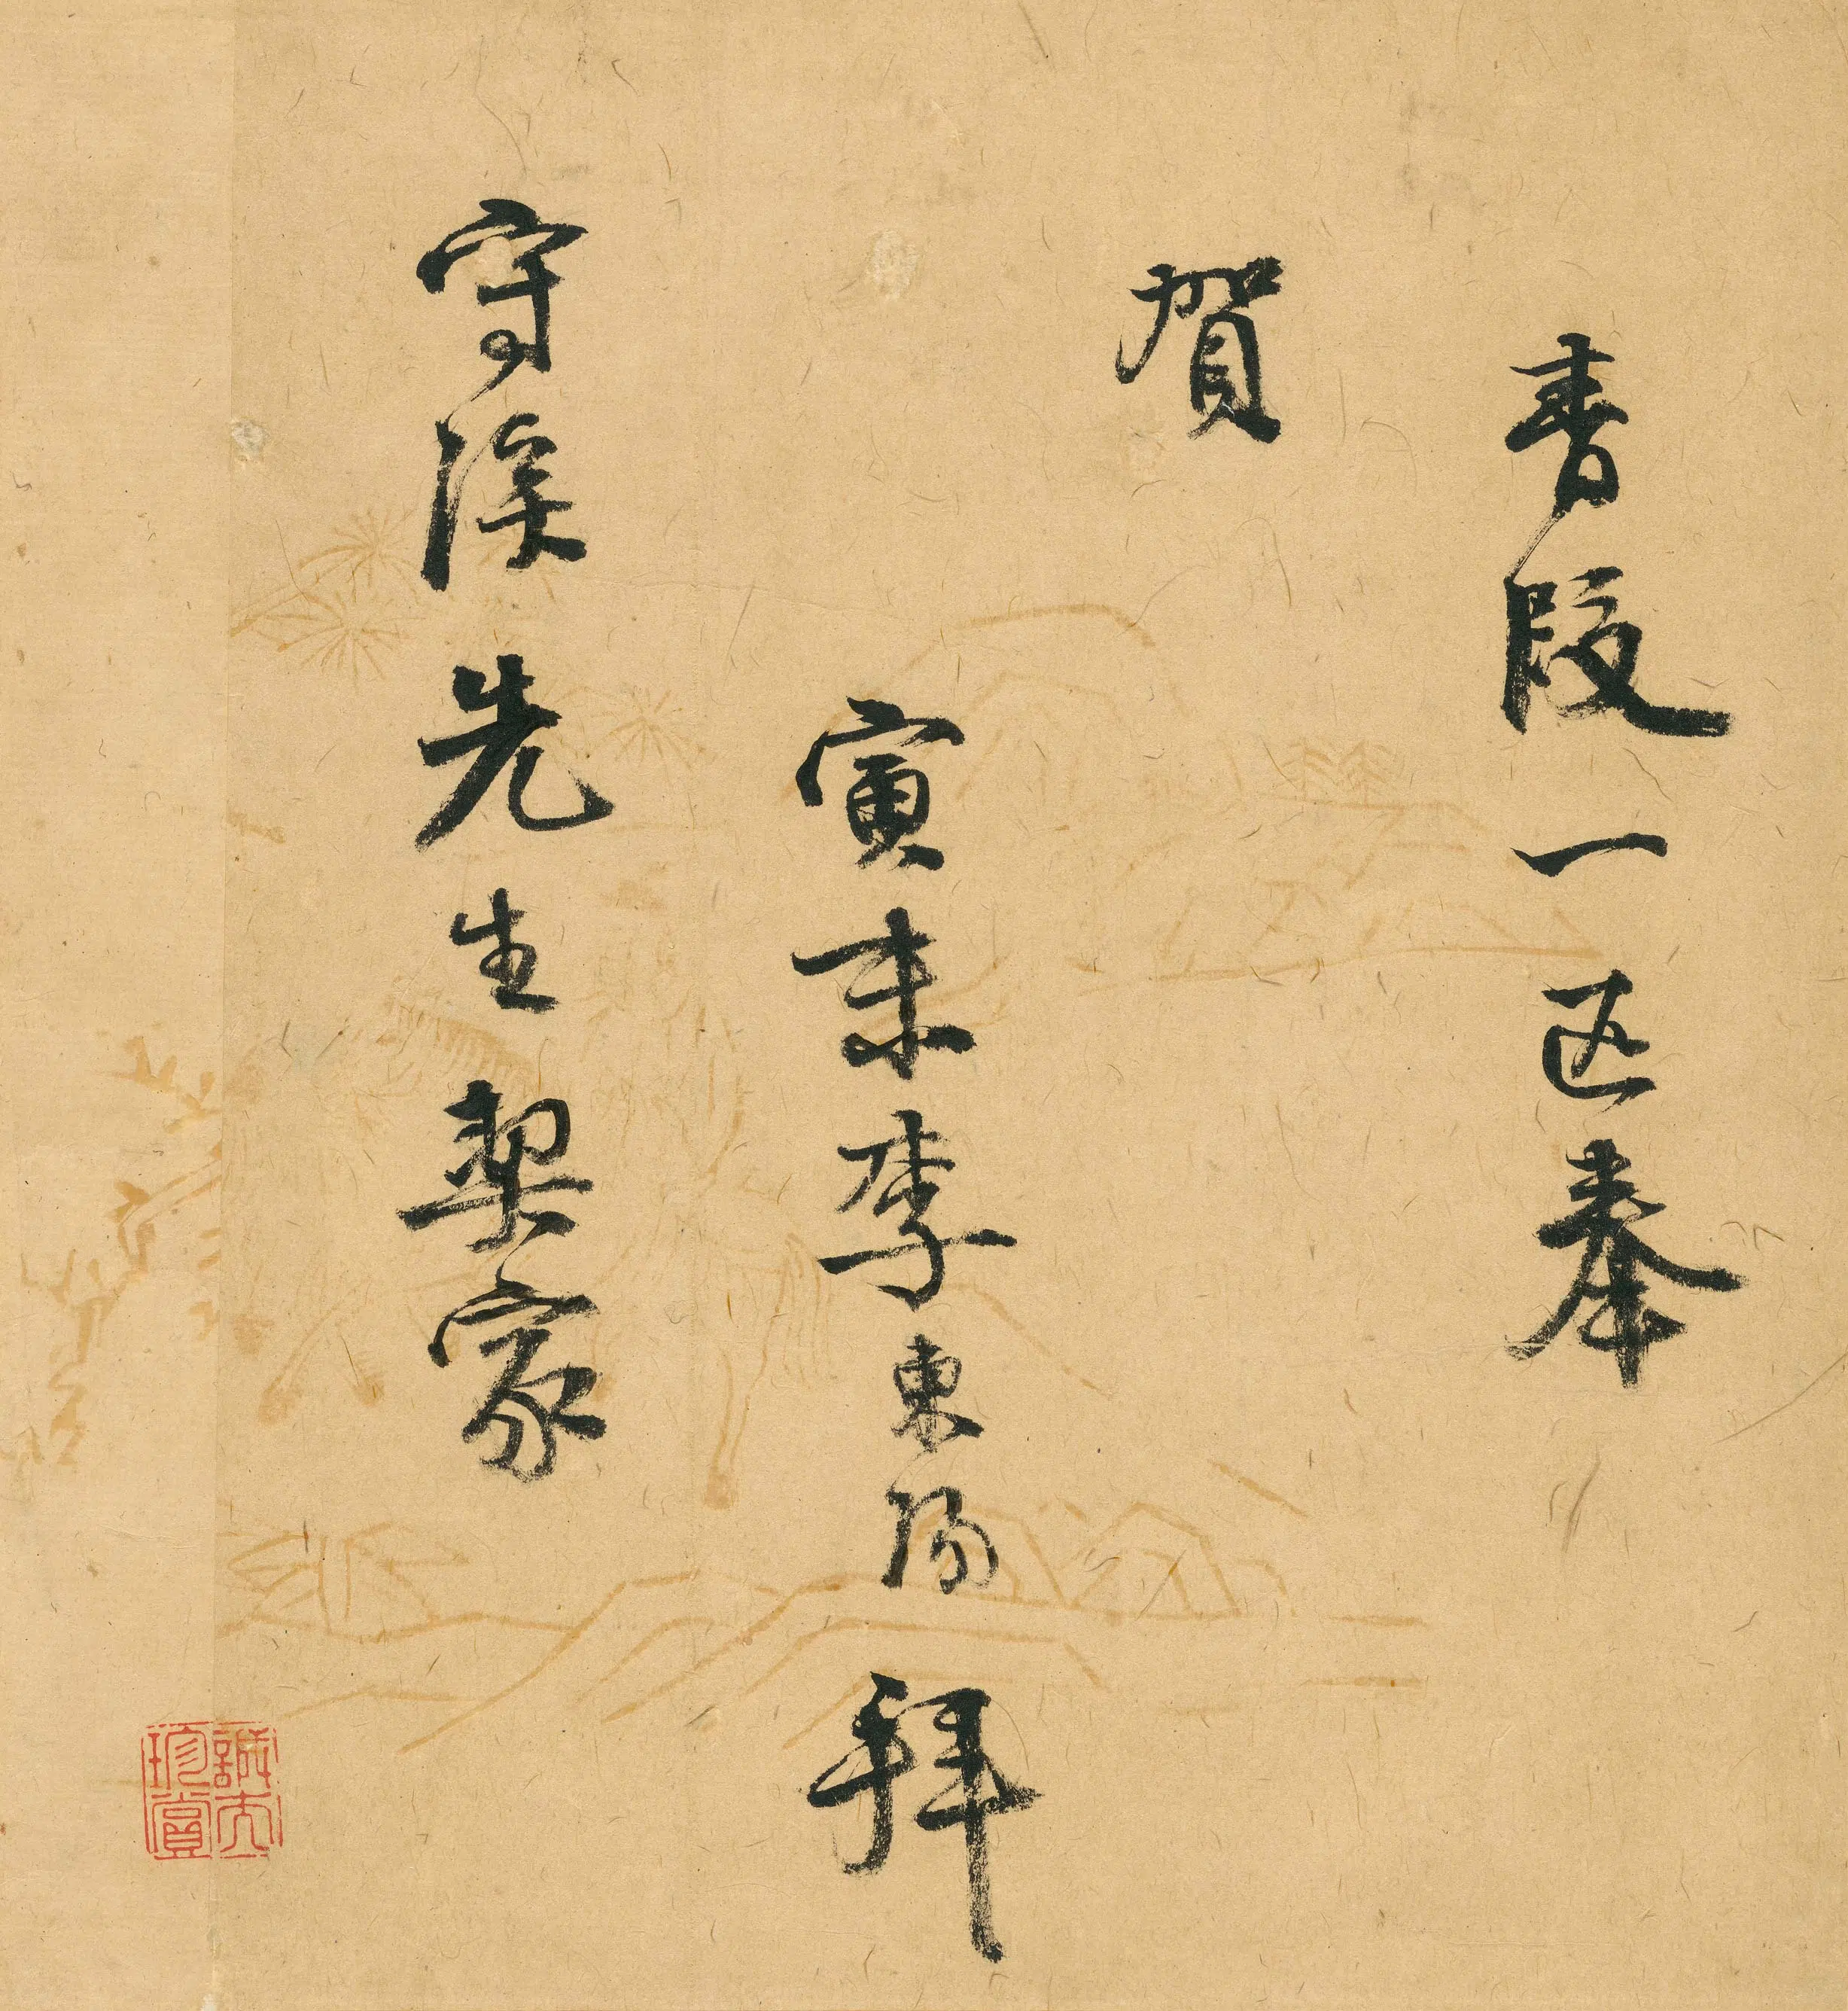 青段一匹奉
賀
寅末李東陽拜
守溪先生契家
珍賞